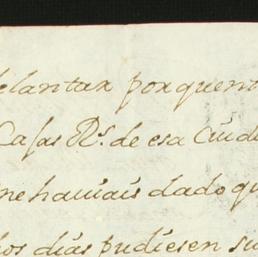 delantar por quento
Casas Rs. de esa Ciud
me haviais dado qu
los dias pudiesen su